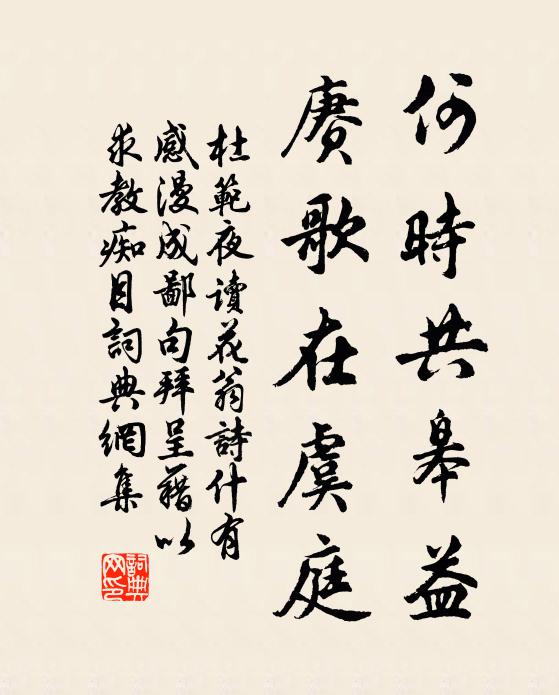 何時共皋益
賡歌在虞庭
杜範夜讀花翁詩什有
感漫成鄙句拜呈藉以
求教痴目詞典網集
詞典网印